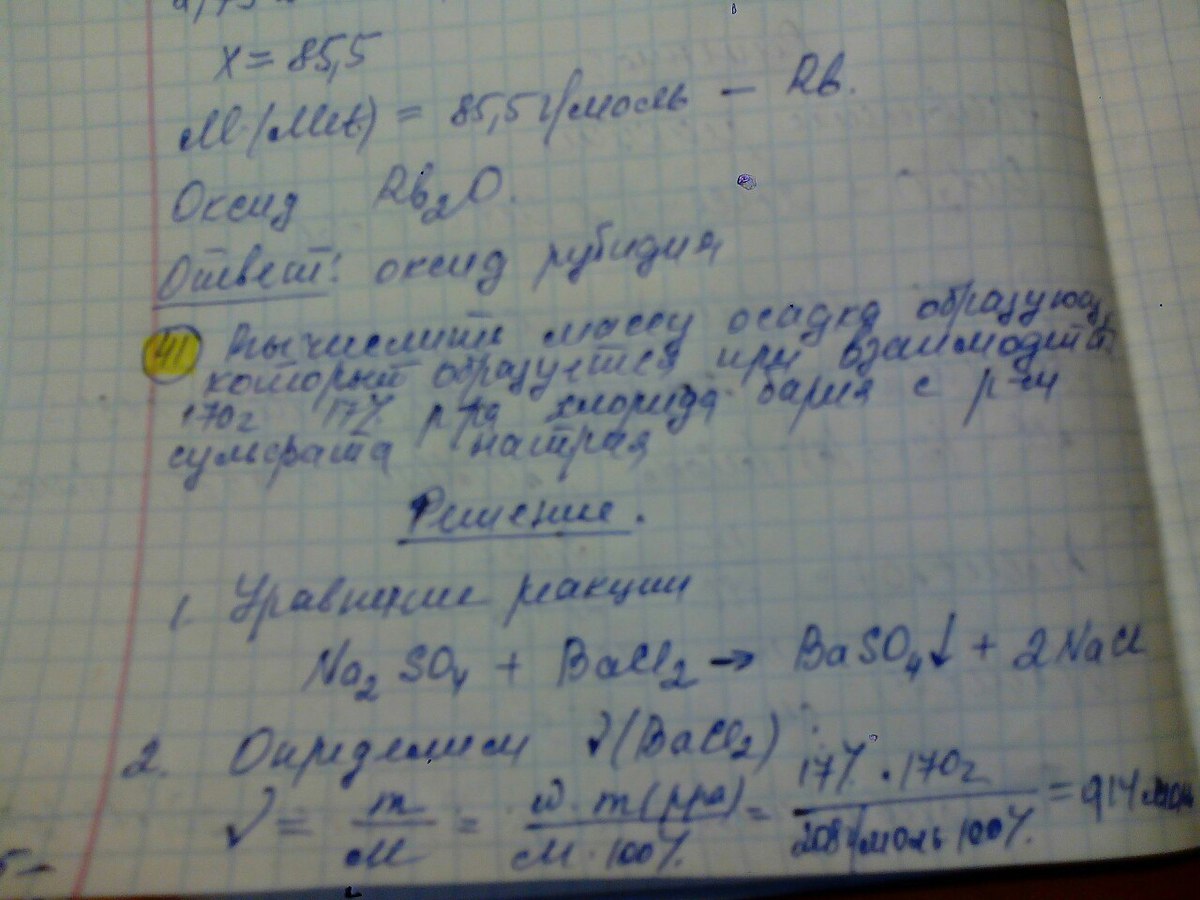 x = 85,5
M(Me) = 85,5 г/моль – Rb.
Оксид Rb₂O.
Ответ: оксид рубидия
41 Вычислить массу осадка образующ,
который образуется при взаимодств.
170г 17% р-ра хлорида бария с р-ом
сульфата натрия
Решение.
1. Уравнение реакции
Na₂SO₄ + BaCl₂ → BaSO₄↓ + 2NaCl
2. Определим ν(BaCl₂):
ν = m/M = ω·m(р-ра)/M·100% = 17%·170г/208г/моль·100% = 0,14 моль